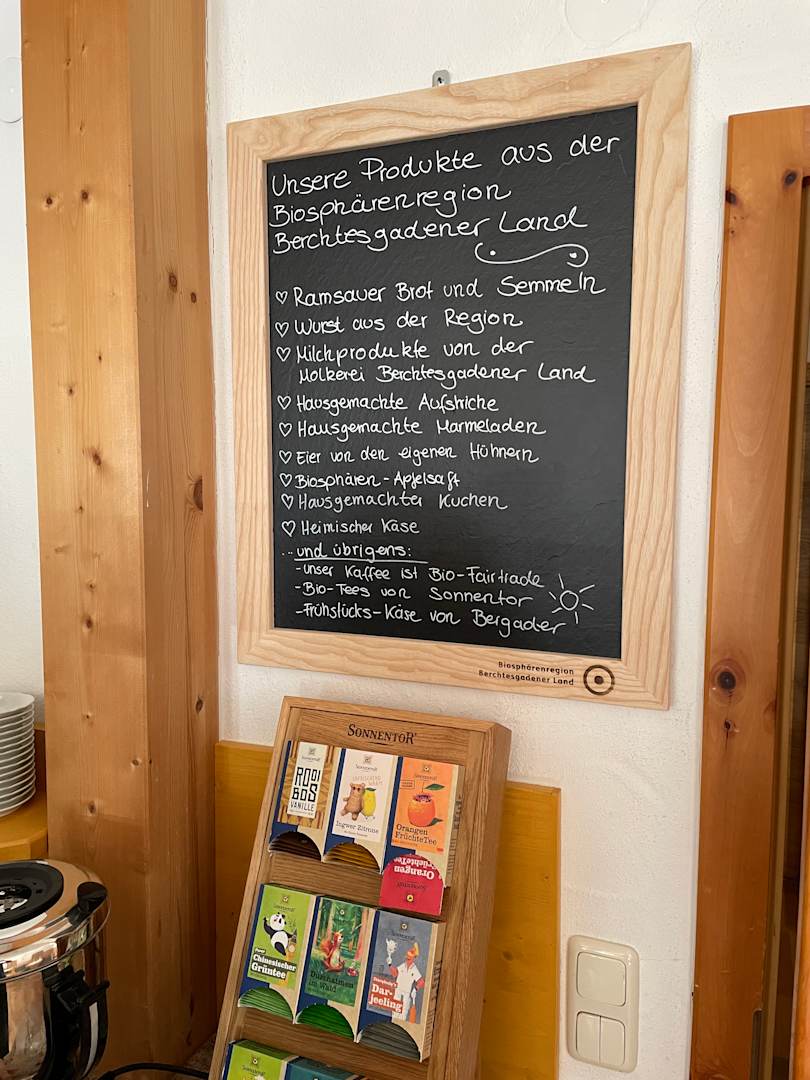 Unsere Produkte aus der
Biosphärenregion
Berchtesgadener Land
♡ Ramsauer Brot und Semmeln
♡ Wurst aus der Region
♡ Milchprodukte von der
Molkerei Berchtesgadener Land
♡ Hausgemachte Aufstriche
♡ Hausgemachte Marmeladen
♡ Eier von den eigenen Hühnern
♡ Biosphären-Apfelsaft
♡ Hausgemachter Kuchen
♡ Heimischer Käse
...und übrigens:
-unser Kaffee ist Bio-Fairtrade
-Bio-Tees von Sonnentor
-Frühstücks-Käse von Bergader
Biosphärenregion
Berchtesgadener Land
SONNENTOR
ROOI
BOS
VANILLE
Sonnentor
Ingwer Zitrone
Sonnentor
Orangen
FrüchteTee
Orangen
FrüchteTee
Sonnentor
Chinesischer
Grüntee
Sonnentor
Durchatmen
im Wald
Sonnentor
Dar-
jeeling